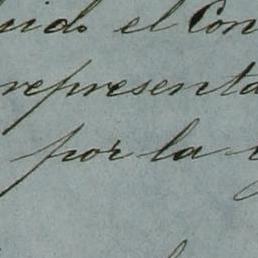 uido el Con
representa
por la